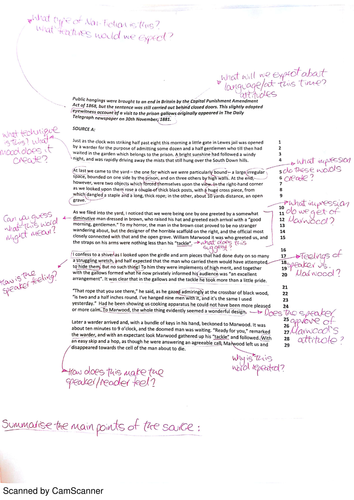 What type of Non-Fiction is this?
What features would we expect?
What will we expect about
language/art at this time?
attitudes
Public hangings were brought to an end in Britain by the Capital Punishment Amendment
Act of 1868, but the sentence was still carried out behind closed doors. This slightly adapted
eyewitness account of a visit to the prison gallows originally appeared in The Daily
Telegraph newspaper on 30th November, 1881.
SOURCE A:
Just as the clock was striking half past eight this morning a little gate in Lewes jail was opened 1
by a warder for the purpose of admitting some dozen and a half gentlemen who till then had 2
waited in the garden which belongs to the prison. A bright sunshine had followed a windy 3
night, and was rapidly driving away the mists that still hung over the South Down hills. 4
What technique
is this? What
mood does it
create?
At last we came to the yard – the one for which we were particularly bound – a large irregular 5
space, bounded on one side by the prison, and on three others by high walls. At the end, 6
however, were two objects which forced themselves upon the view. In the right-hand corner 7
as we looked upon there rose a couple of thick black posts, with a huge cross piece, from 8
which dangled a staple and a long, thick rope; in the other, about 10 yards distance, an open 9
grave. 10
What impression
do these words
create?
As we filed into the yard, I noticed that we were being one by one greeted by a somewhat 11
diminutive man dressed in brown, who raised his hat and greeted each arrival with a "good 12
morning, gentlemen." To my horror, the man in the brown coat proved to be no stranger 13
wandering about, but the designer of the horrible scaffold on the right, and the official most 14
closely connected with that and the open grave. William Marwood it was who greeted us, and 15
the straps on his arms were nothing less than his "tackle". 16
What impression
do we get of
Marwood?
Can you guess
what this word
might mean?
What does this
suggest?
I confess to a shiver as I looked upon the girdle and arm pieces that had done duty on so many 17
a struggling wretch, and half expected that the man who carried them would have attempted 18
to hide them. But no such thing! To him they were implements of high merit, and together 19
with the gallows formed what he now privately informed his audience was "an excellent 20
arrangement". It was clear that in the gallows and the tackle he took more than a little pride. 21
Feelings of
speaker vs.
Marwood?
How is the
speaker feeling?
"That rope that you see there," he said, as he gazed admiringly at the crossbar of black wood, 22
"is two and a half inches round. I've hanged nine men with it, and it's the same I used 23
yesterday." Had he been showing us cooking apparatus he could not have been more pleased 24
or more calm. To Marwood, the whole thing evidently seemed a wonderful design. 25
Does the speaker
approve of
Marwood's
attitude?
Later a warder arrived and, with a bundle of keys in his hand, beckoned to Marwood. It was 26
about ten minutes to 9 o'clock, and the doomed man was waiting. "Ready for you," remarked 27
the warder, and with an expectant look Marwood gathered up his "tackle" and followed. With 28
an easy skip and a hop, as though he were answering an agreeable call, Marwood left us and 29
disappeared towards the cell of the man about to die.
How does this make the
speaker/reader feel?
Why is this
word repeated?
Summarise the main points of the source:
Scanned by CamScanner